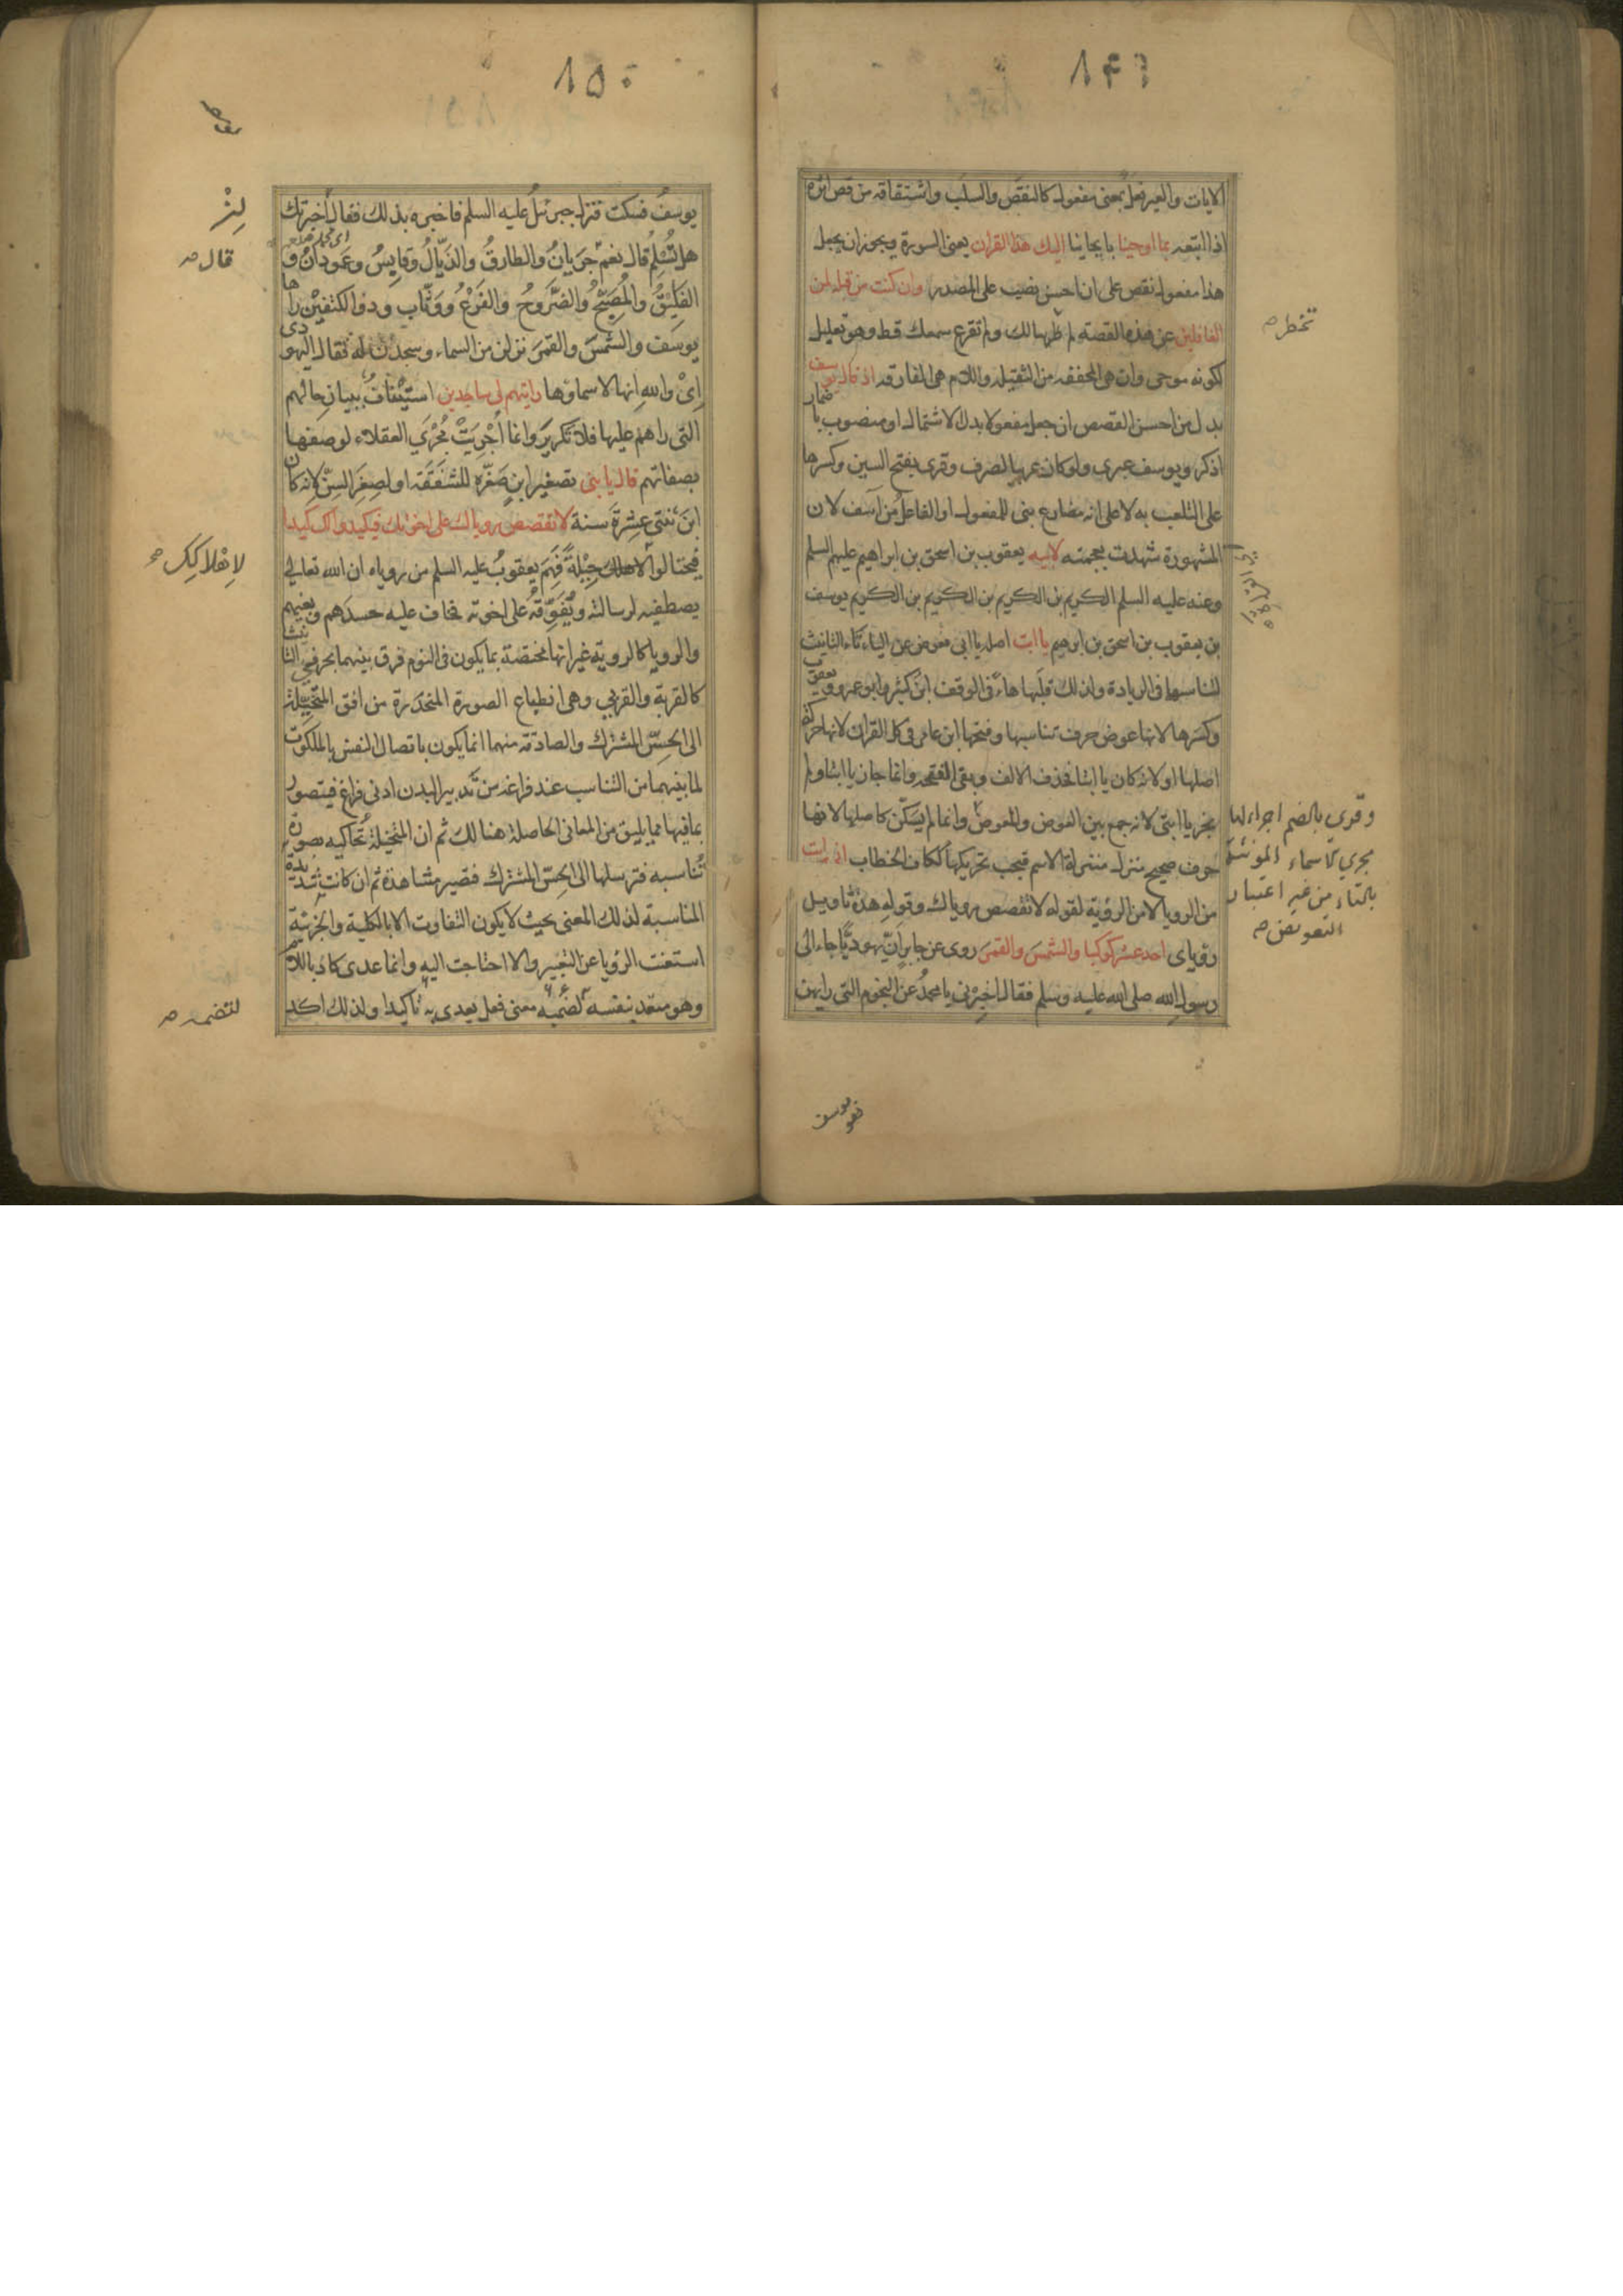 ١٤٩
الايات والعبر فعل بمعنى مفعول كالنقض والسلب واشتقاقه من قص اثره
اذا اتبعه بما اوحينا بايحائنا اليك هذا القران يعنى السورة ويجوز ان يجعل
هذا مفعول نقص على ان احسن نصب على المصدر وان كنت من قبله لمن
الغافلين عن هذه القصة لم ببالك ولم تقرع سمعك قط وهو تعليل
تخطر صح
لكونه موحى وان هى المخففة من الثقيلة واللام هى الفارقة اذ قال يوسف
بدل من احسن القصص ان جعل مفعولا بدل الاشتمال او منصوب باضمار
اذكر ويوسف عبرى ولو كان عربيا لصرف وقرى بفتح السين وكسرها
على التلعب به لا على انه مضارع بنى للمفعول او الفاعل من آسف لان
المشهورة شهدت بعجمته لابيه يعقوب بن اسحق بن ابراهيم عليهم السلم
وعنه عليه السلم الكريم بن الكريم بن الكريم بن الكريم يوسف
بن يعقوب بن اسحق بن ابرهيم يا ابت اصله يا ابى فعوض عن الياء تاء التانيث
لتناسبهما فى الزيادة ولذلك قلبها هاء فى الوقف ابن كثير وابو عمرو ويعقوب
وكسرها لانها عوض حرف تناسبها وفتحها ابن عامر فى كل القران لانها حركة
اصلها او لانه كان يا ابتا فحذف الالف وبقى الفتحة وانما جاز يا ابتا ولم
يجز يا ابتى لانه جمع بين العوض والمعوض وانما لم يسكن كاصلها لانها
وقرئ بالضم اجراء لها
مجرى الاسماء المؤنثة
بالتاء من غير اعتبار
التعويض صح
حرف صحيح منزل منزلة الاسم فيجب تحريكها ككاف الخطاب انى رايت
من الرويا لا من الرؤية لقوله لا تقصص روياك وقوله هذا تاويل
رؤياى احد عشر كوكبا والشمس والقمر روى عن جابر ان يهوديا جاء الى
رسول الله صلى الله عليه وسلم فقال اخبرنى يا محمد عن النجوم التى رايهن
يوسف
١٥٠
يوسف فسكت فنزل جبرئيل عليه السلم فاخبره بذلك فقال اخبرتك
هل تسلم قال نعم جريان والطارق والذيال وقابس وعمودان و
قال صح
الفليق والمصبح والضروح والفرغ ووثاب وذو الكتفين راها
يوسف والشمس والقمر نزلن من السماء وسجدن له فقال اليهودى
اى والله انها لاسماؤها رايتهم لى ساجدين استيناف ببيان حالهم
التى راهم عليها فلا تكرير وانما اجريت مجرى العقلاء لوصفها
بصفاتهم قال يا بنى تصغير ابن صغره للشفقة او لصغر السن لانه كان
ابن ثنتى عشرة سنة لا تقصص روياك على اخوتك فيكيدوا لك كيدا
فيحتالوا لاهلاك حيلة فهم يعقوب عليه السلم من روياه ان الله تعالى
لاهلاكك صح
يصطفيه لرسالته ويفوقه على اخوته فخاف عليه حسدهم وبغيهم
والرويا كالروية غير انها مختصة بما يكون فى النوم فرق بينهما بحرفى التانيث
كالقربة والقربى وهى انطباع الصورة المنحدرة من افق المتخيلة
الى الحس المشترك والصادقة منهما انما يكون باتصال النفس بالملكوت
لما بينهما من التناسب عند فراغه من تدبير البدن ادنى فراغ فيتصور
بما فيها مما يليق من المعانى الحاصلة هنالك ثم ان المتخيلة تحاكيه بصورة
تناسبه فترسلها الى الحس المشترك فتصير مشاهدة ثم ان كانت شديدة
المناسبة لذلك المعنى بحيث لا يكون التفاوت الا بالكلية والجزئية
استغنت الرؤيا عن التعبير والا احتاجت اليه وانما عدى كاد باللام
وهو متعد بنفسه لضمه معنى فعل يعدى به تاكيدا ولذلك اكد
لتضمنه صح